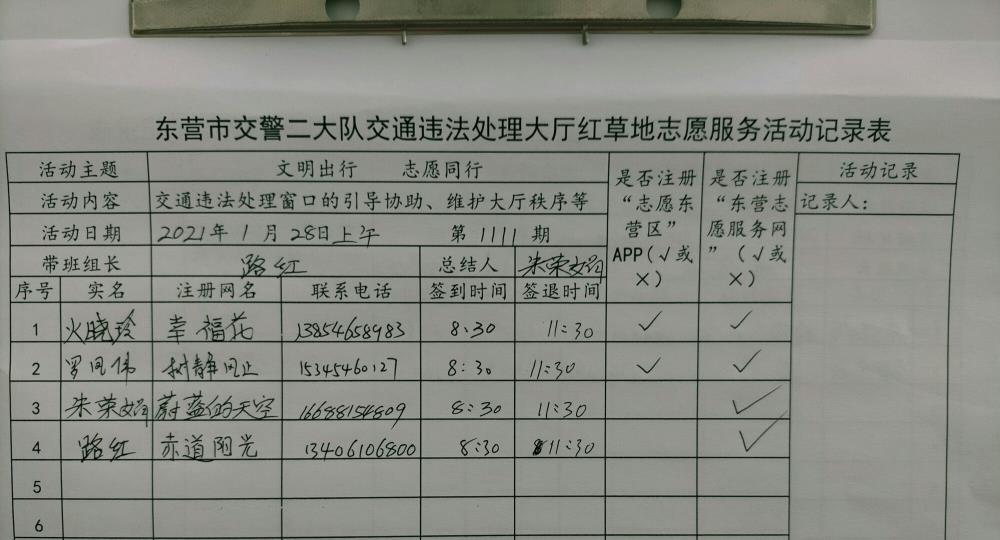 东营市交警二大队交通违法处理大厅红草地志愿服务活动记录表
活动主题 文明出行 志愿同行 是否注册“志愿东营区”APP(√或×) 是否注册“东营志愿服务网”(√或×) 活动记录
活动内容 交通违法处理窗口的引导协助、维护大厅秩序等 记录人:
活动日期 2021年1月28日上午 第1111期
带班组长 路红 总结人 朱荣娟
序号 实名 注册网名 联系电话 签到时间 签退时间
1 火晓玲 幸福花 13854658983 8:30 11:30 ✓ ✓
2 罗凤伟 树静风止 15345460127 8:30 11:30 ✓ ✓
3 朱荣娟 蔚蓝的天空 16688154809 8:30 11:30 ✓
4 路红 赤道阳光 13406106800 8:30 11:30 ✓
5
6